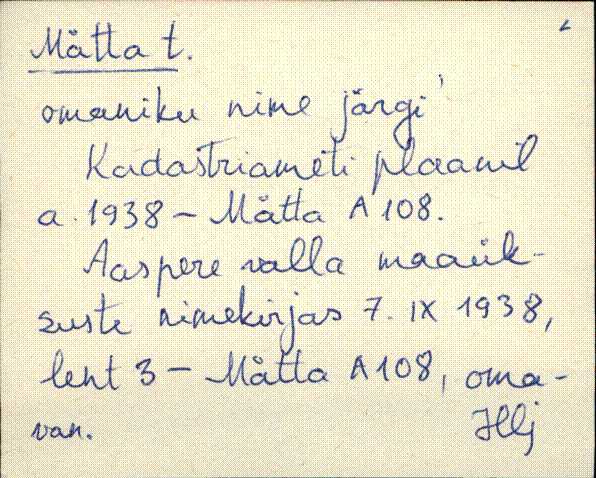 Mätta t.
omaniku nime järgi
Kadastriameti plaanil
a. 1938 – Mätta A 108.
Aaspere valla maaük-
suste nimekirjas 7. IX 1938,
leht 3 – Mätta A 108, oma-
van.